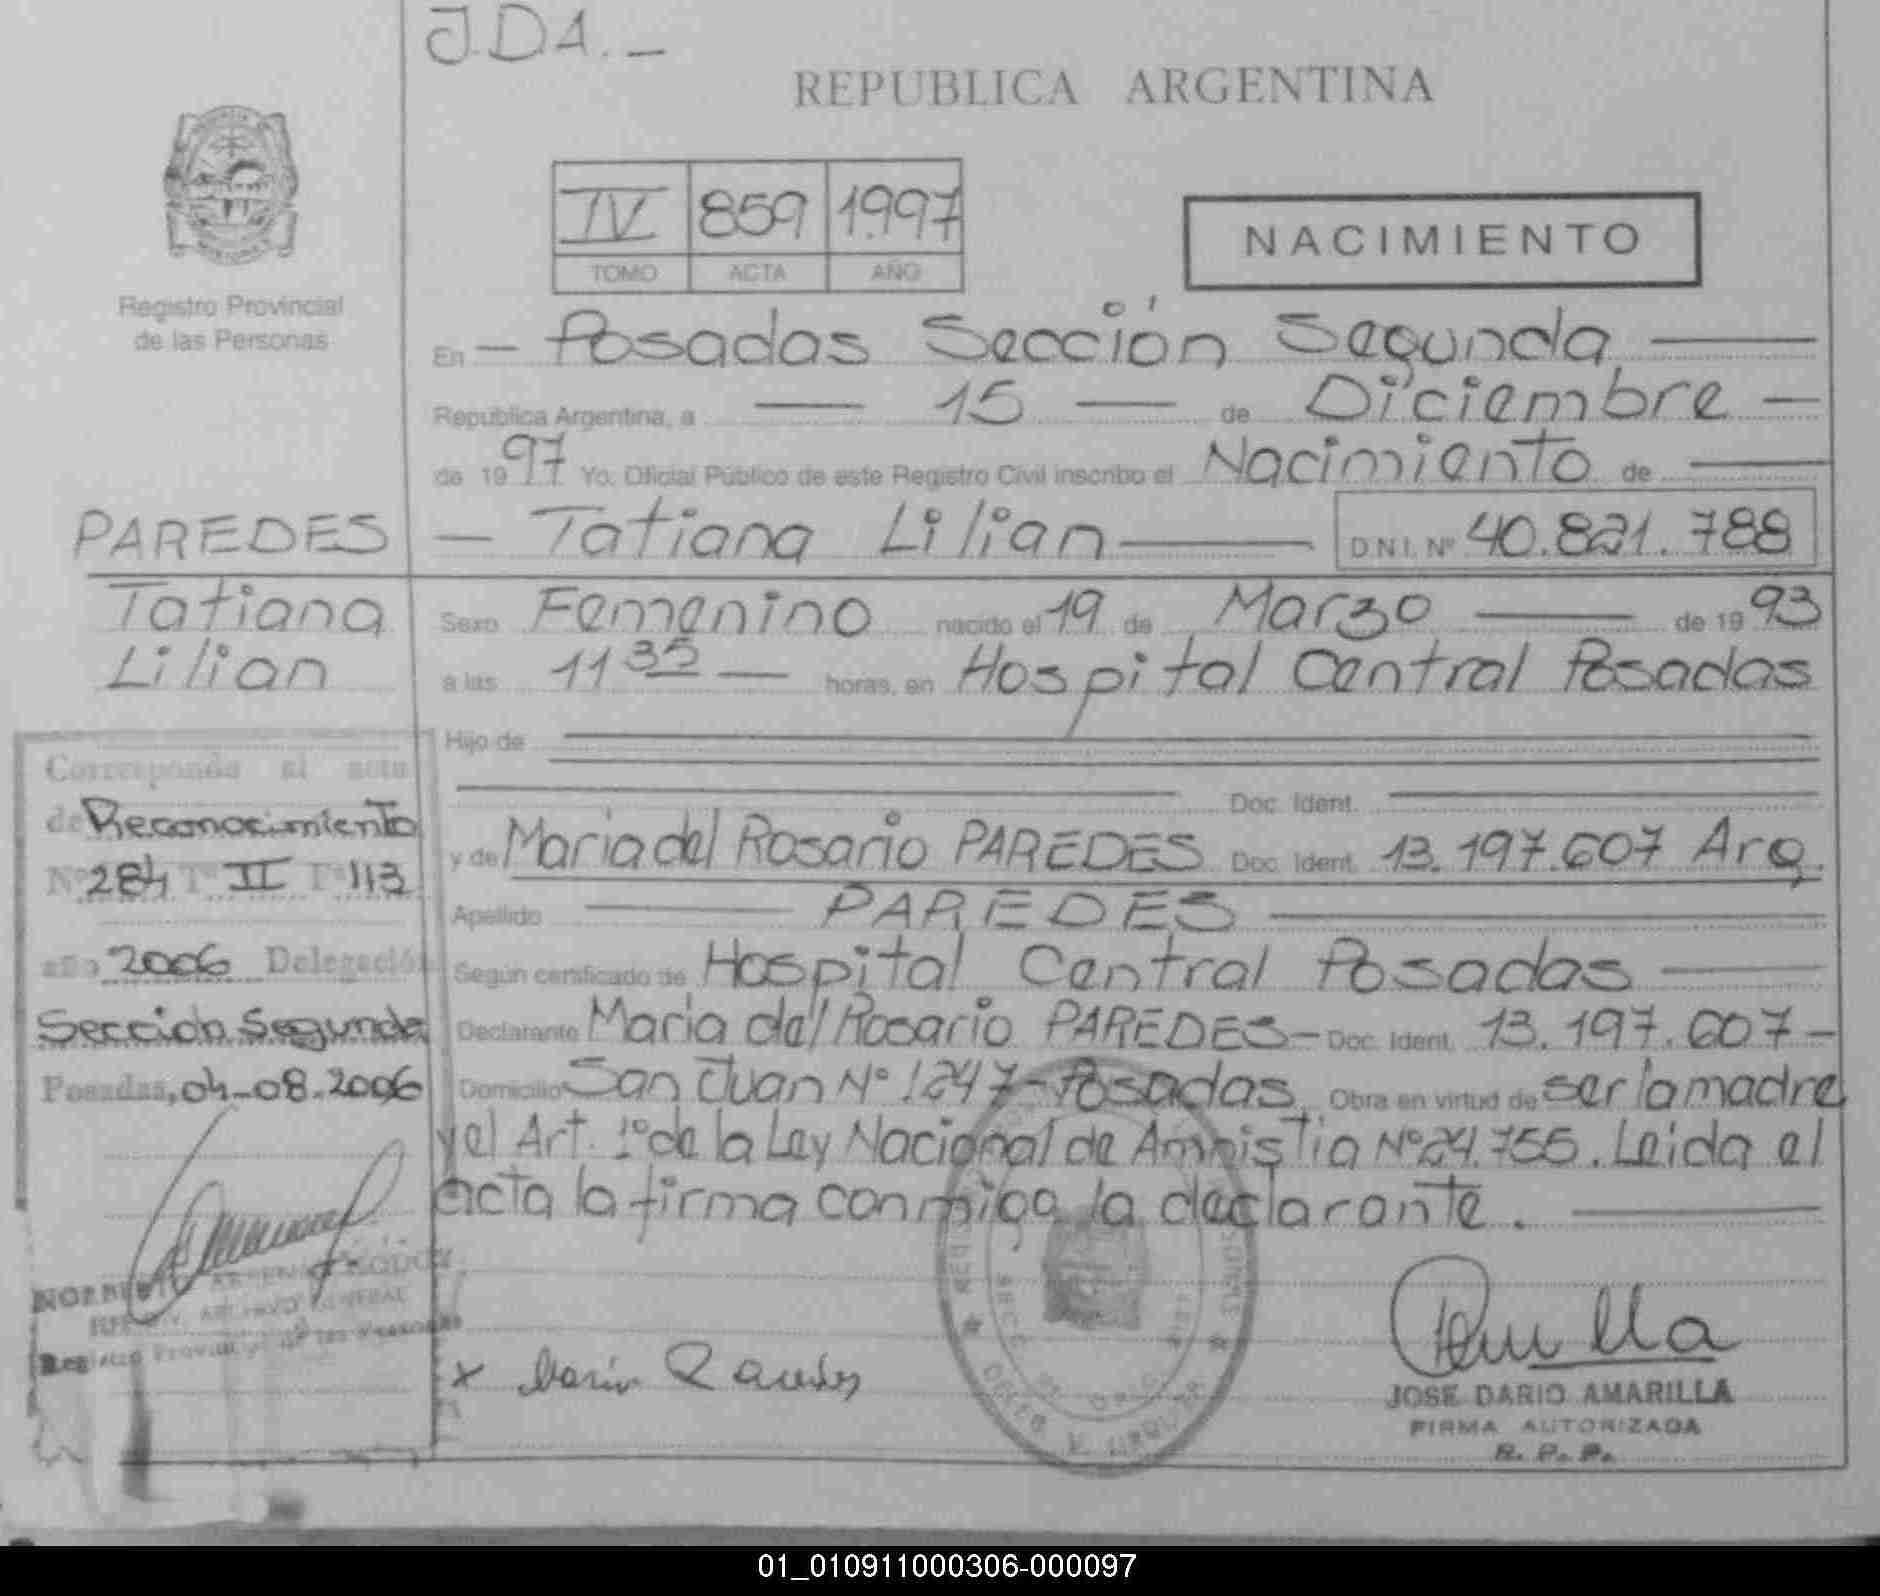 J.D.A. _
REPUBLICA ARGENTINA
IV 859 1.997
TOMO ACTA AÑO
NACIMIENTO
Registro Provincial
de las Personas
En — Posadas Sección Segunda —
Republica Argentina, a — 15 — de Diciembre —
de 1997 Yo. Oficial Público de este Registro Civil inscribo el Nacimiento de —
PAREDES
Tatiana
Lilian
— Tatiana Lilian — D.N.I. Nº 40.821.788
Sexo Femenino nacido el 19 de Marzo — de 1993
a las 11 35 — horas, en Hospital Central Posadas
Hijo de
Doc. Ident.
y de Maria del Rosario PAREDES Doc. Ident. 13.197.607 Arg.
Apellido — PAREDES —
Según certificado de Hospital Central Posadas —
Declarante Maria del Rosario PAREDES — Doc. Ident. 13.197.607 —
Domicilio San Juan Nº 1247 - Posadas. Obra en virtud de ser la madre
y el Art. 1º de la Ley Nacional de Amnistia Nº 24.755. Leida el
acta la firma conmigo la declarante. —
Corresponde al acta
de Reconocimiento
Nº 284 Tº II Fº 113
año 2006 Delegación
Sección Segunda
Posadas, 04-08-2006
NORBERTO
ARCHIVO GENERAL
Registro Provincial de las Personas
x Maria Paredes
JOSE DARIO AMARILLA
FIRMA AUTORIZADA
R. P. P.
01_010911000306-000097